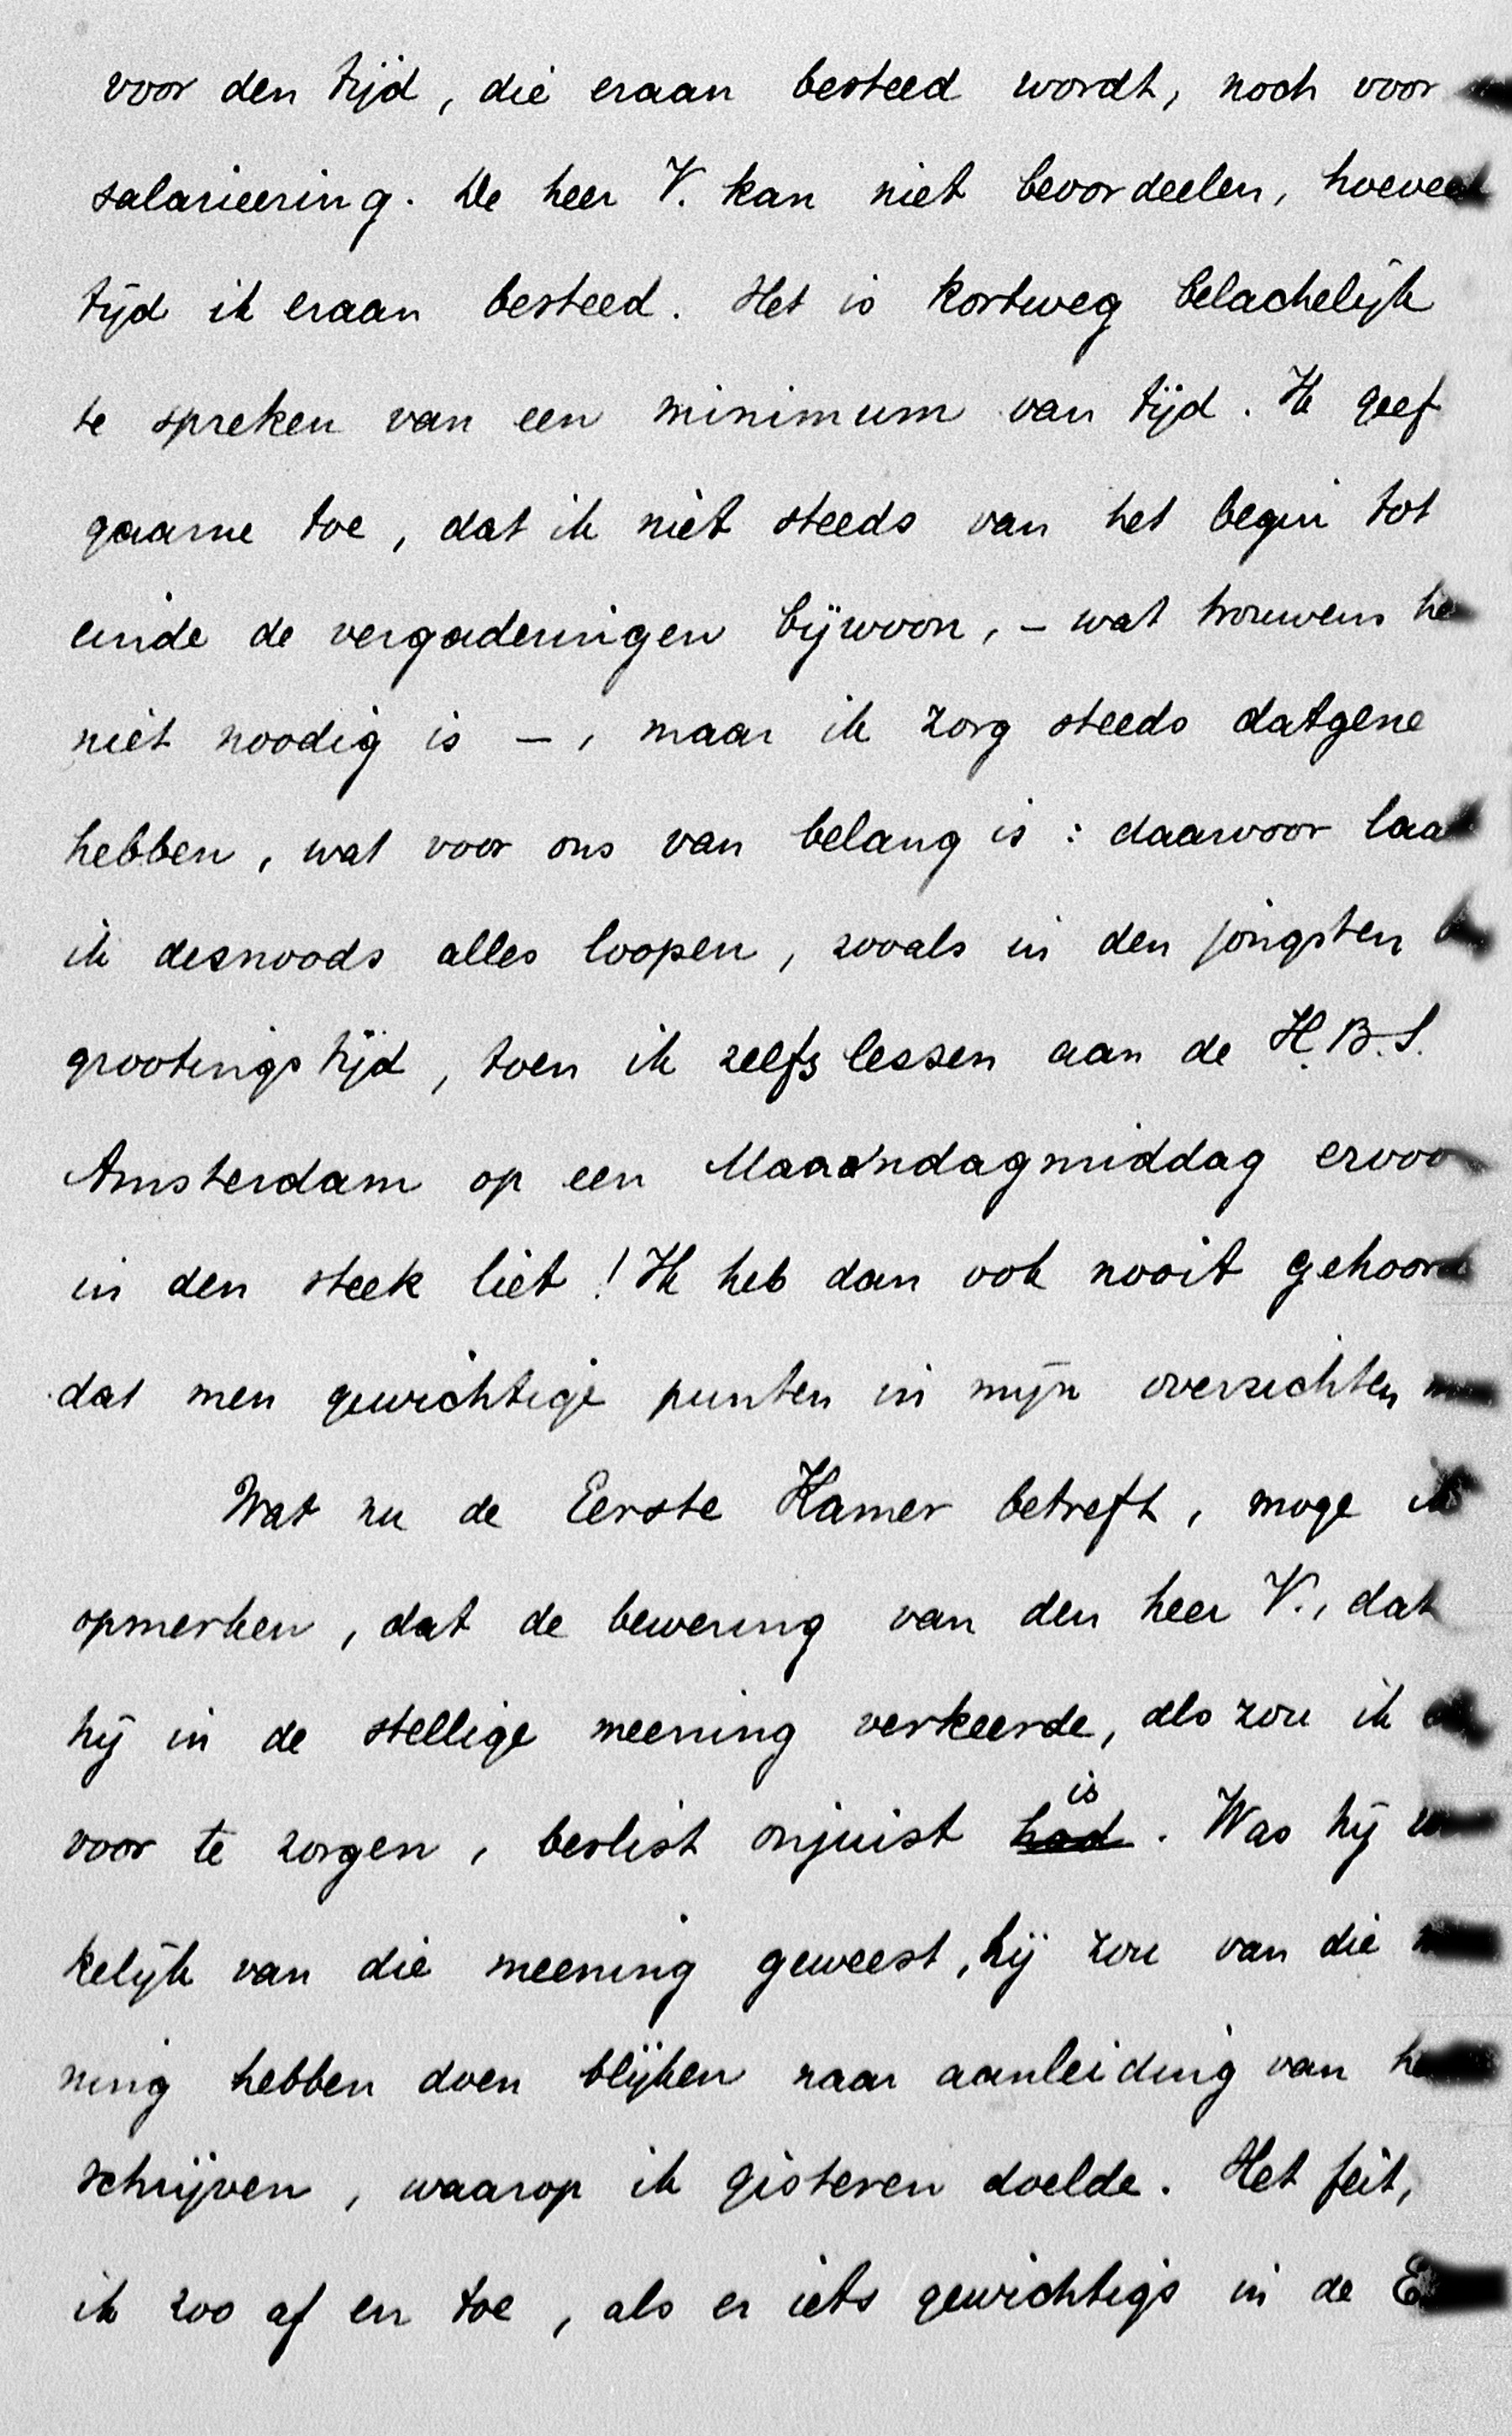 voor den tijd, die eraan besteed wordt, noch voor
salarieering. De heer V. kan niet bevordeelen, hoeveel
tijd ik eraan besteed. Het is kortweg belachelijk
te spreken van een minimum van tijd. Ik geef
gaarne toe, dat ik niet steeds van het begin tot
einde de vergaderingen bijwoon, – wat trouwens
niet noodig is –, maar ik zorg steeds datgene
hebben, wat voor ons van belang is : daarvoor laat
ik desnoods alles loopen, zooals in den jongsten
grootingstijd, toen ik zelfs lessen aan de H.B.S.
Amsterdam op een Maandagmiddag ervoor
in den steek liet ! Ik heb dan ook nooit gehoord
dat men gewichtige punten in mijn overzichten
Wat nu de Eerste Kamer betreft, moge ik
opmerken, dat de bewering van den heer V., dat
hij in de stellige meening verkeerde, als zou ik
voor te zorgen, beslist onjuist had is. Was hij
kelijk van die meening geweest, hij zou van die
ning hebben doen blijken naar aanleiding van
schrijven, waarop ik gisteren doelde. Het feit,
ik zoo af en toe, als er iets gewichtigs in de